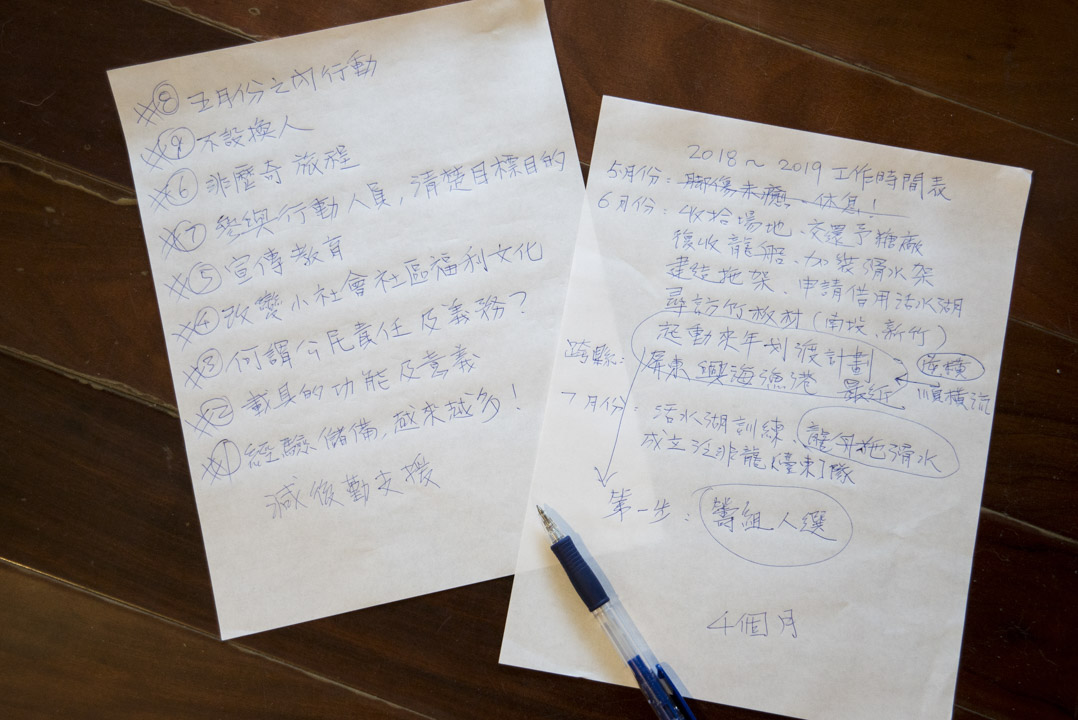 ※⑧ 五月份之內行動
※⑨ 不設換人
※⑥ 非歷奇旅程
※⑦ 參與行動人員,清楚目標目的
※⑤ 宣傳教育
※④ 改變小社會社區福利文化
※③ 何謂公民責任及義務?
※② 載具的功能及意義
※① 經驗儲備,越來越多!
減後勤支援
2018~2019工作時間表
5月份:腳傷未癒、休息!
6月份:收拾場地、交還予糖廠
復收龍船、加裝滑水架
建造拖架、申請借用活水湖
尋訪竹板材(南投、新竹)
起動來年划渡計劃
跨縣:屏東 興海漁港 最近
逆橫
順橫流
7月份:活水湖訓練、龍舟拖滑水
成立泛非龍【臺東】隊
第一步:籌組人選
4個月